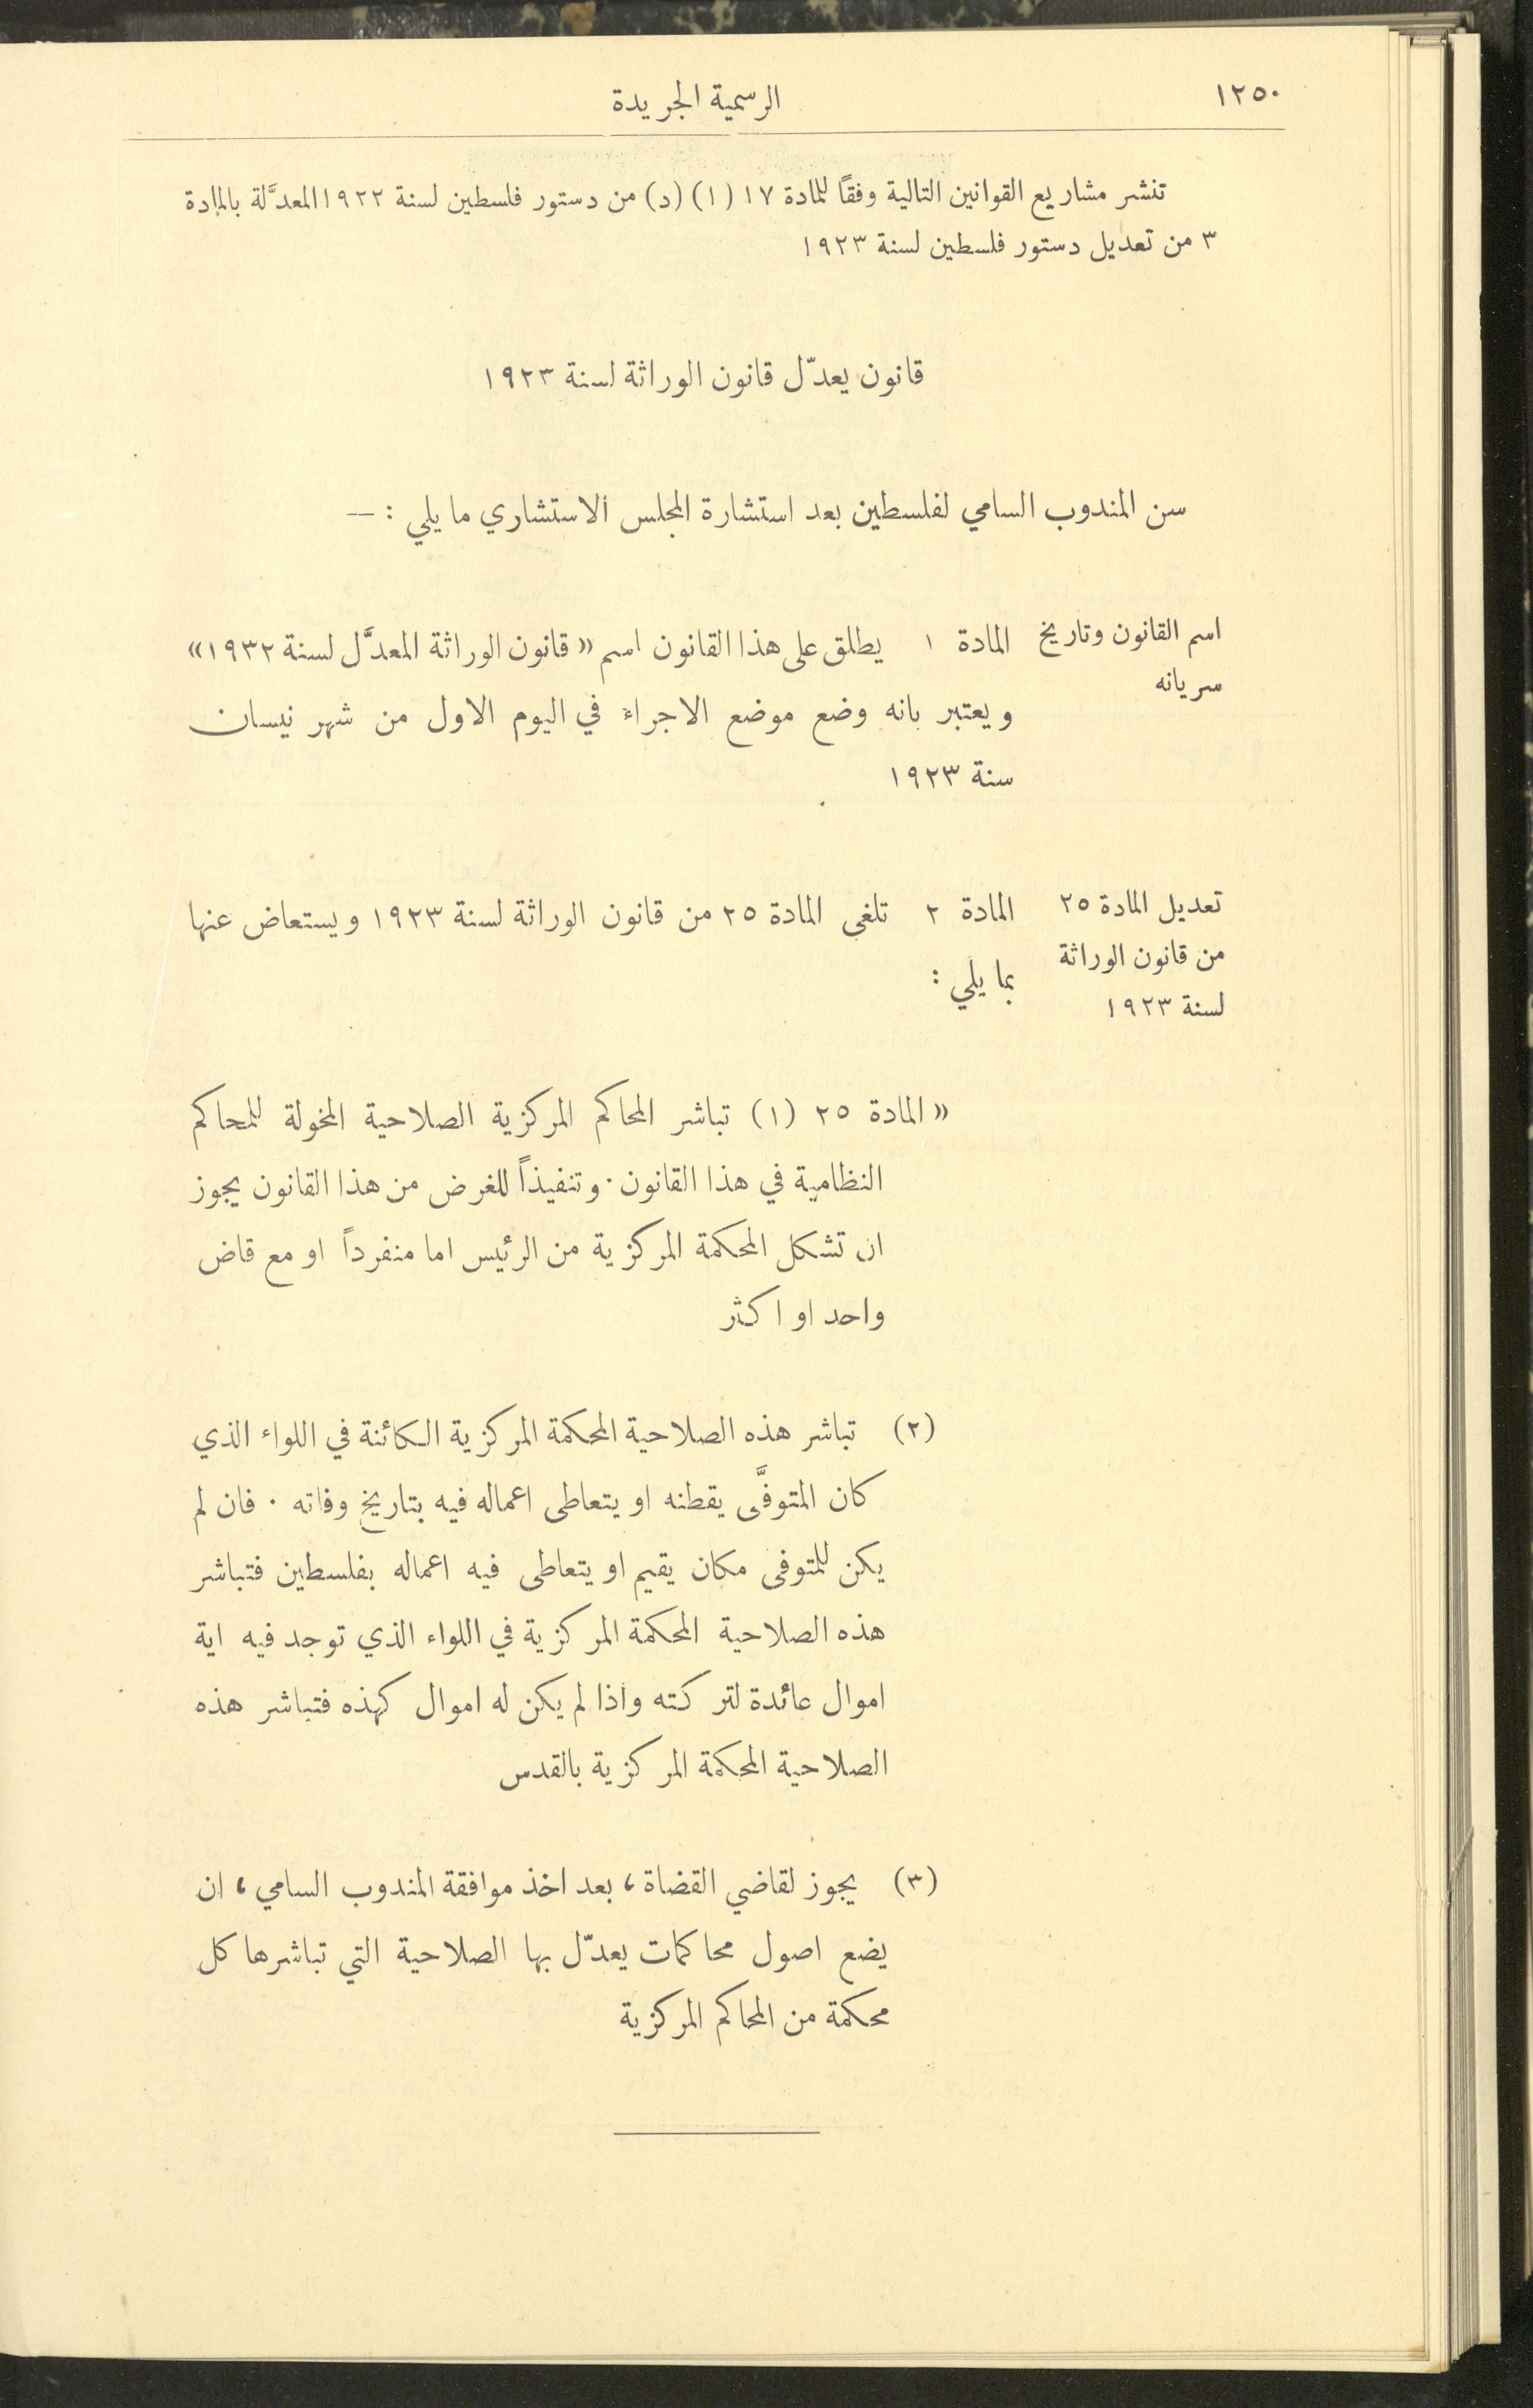 ١٢٥٠
الرسمية الجريدة
تنشر مشاريع القوانين التالية وفقاً للمادة ١٧ (١) (د) من دستور فلسطين لسنة ١٩٢٢ المعدَّلة بالمادة
٣ من تعديل دستور فلسطين لسنة ١٩٢٣
قانون يعدّل قانون الوراثة لسنة ١٩٢٣
سن المندوب السامي لفلسطين بعد استشارة المجلس الاستشاري ما يلي : —
اسم القانون وتاريخ
سريانه
المادة ١ يطلق على هذا القانون اسم «قانون الوراثة المعدَّل لسنة ١٩٣٢»
ويعتبر بانه وضع موضع الاجراء في اليوم الاول من شهر نيسان
سنة ١٩٢٣
تعديل المادة ٢٥
من قانون الوراثة
لسنة ١٩٢٣
المادة ٢ تلغى المادة ٢٥ من قانون الوراثة لسنة ١٩٢٣ ويستعاض عنها
بما يلي :
«المادة ٢٥ (١) تباشر المحاكم المركزية الصلاحية المخولة للمحاكم
النظامية في هذا القانون . وتنفيذاً للغرض من هذا القانون يجوز
ان تشكل المحكمة المركزية من الرئيس اما منفرداً او مع قاض
واحد او اكثر
(٢) تباشر هذه الصلاحية المحكمة المركزية الكائنة في اللواء الذي
كان المتوفَّى يقطنه او يتعاطى اعماله فيه بتاريخ وفاته . فان لم
يكن للمتوفى مكان يقيم او يتعاطى فيه اعماله بفلسطين فتباشر
هذه الصلاحية المحكمة المركزية في اللواء الذي توجد فيه اية
اموال عائدة لتركته واذا لم يكن له اموال كهذه فتباشر هذه
الصلاحية المحكمة المركزية بالقدس
(٣) يجوز لقاضي القضاة ، بعد اخذ موافقة المندوب السامي ، ان
يضع اصول محاكمات يعدّل بها الصلاحية التي تباشرها كل
محكمة من المحاكم المركزية